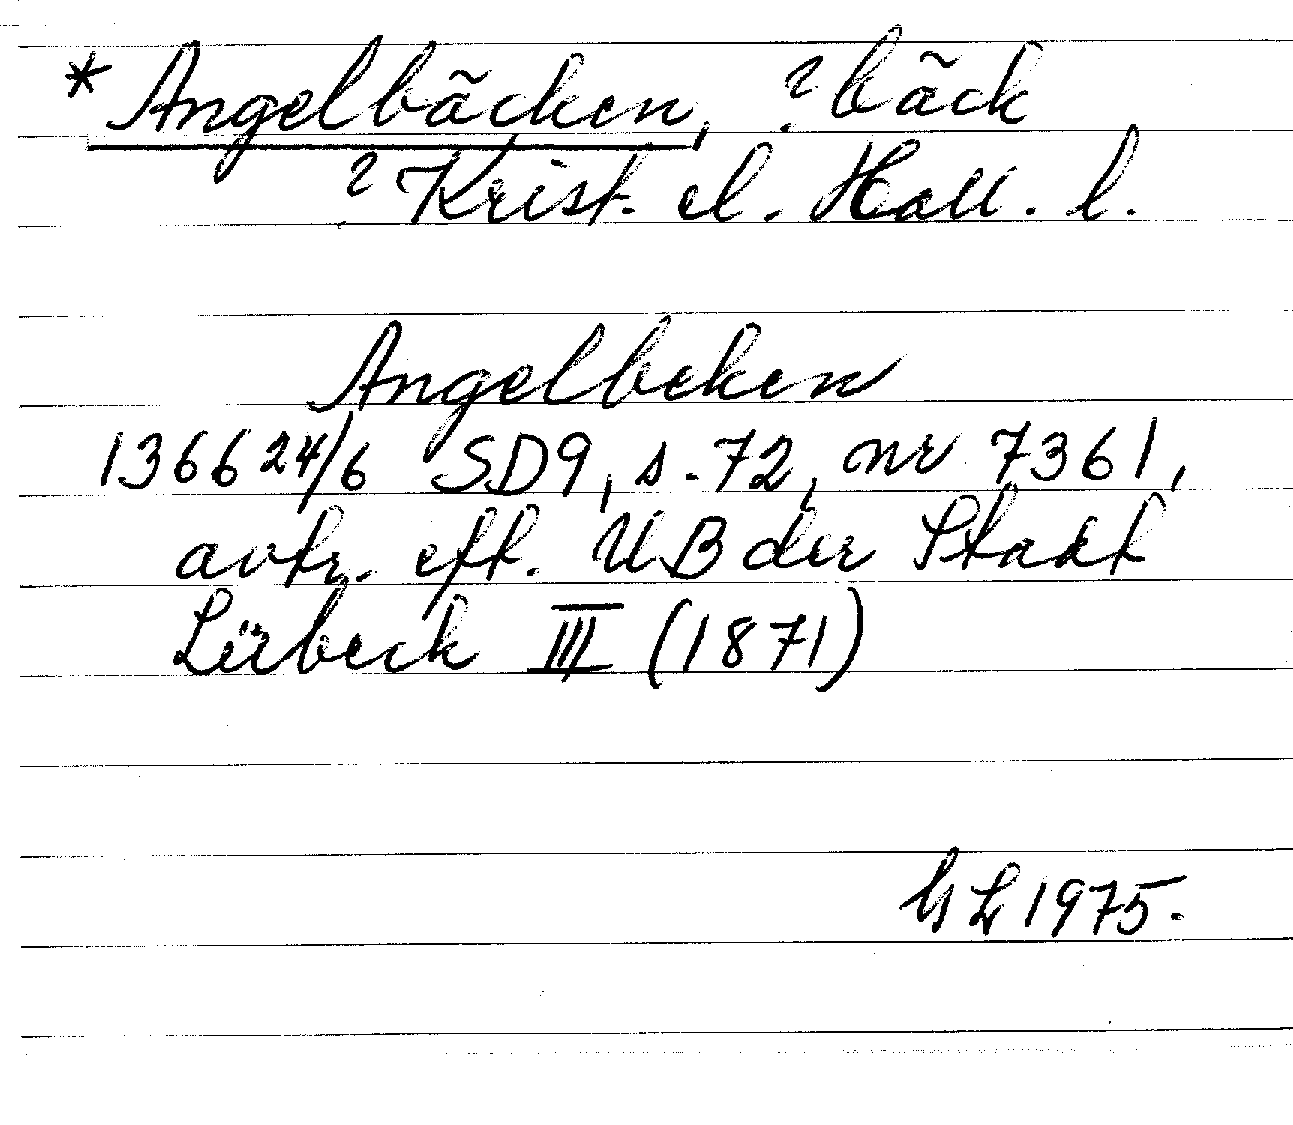 * Angelbäcken, ? bäck
? Krist. el. Hall. l.
Angelbeken
1366 24/6 SD9, s. 72, nr 7361,
avtr. eft. UB der Stadt
Lübeck III (1871)
1975.